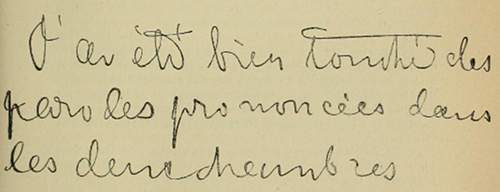 J'ai été bien touché des
paroles prononcées dans
les deux chambres